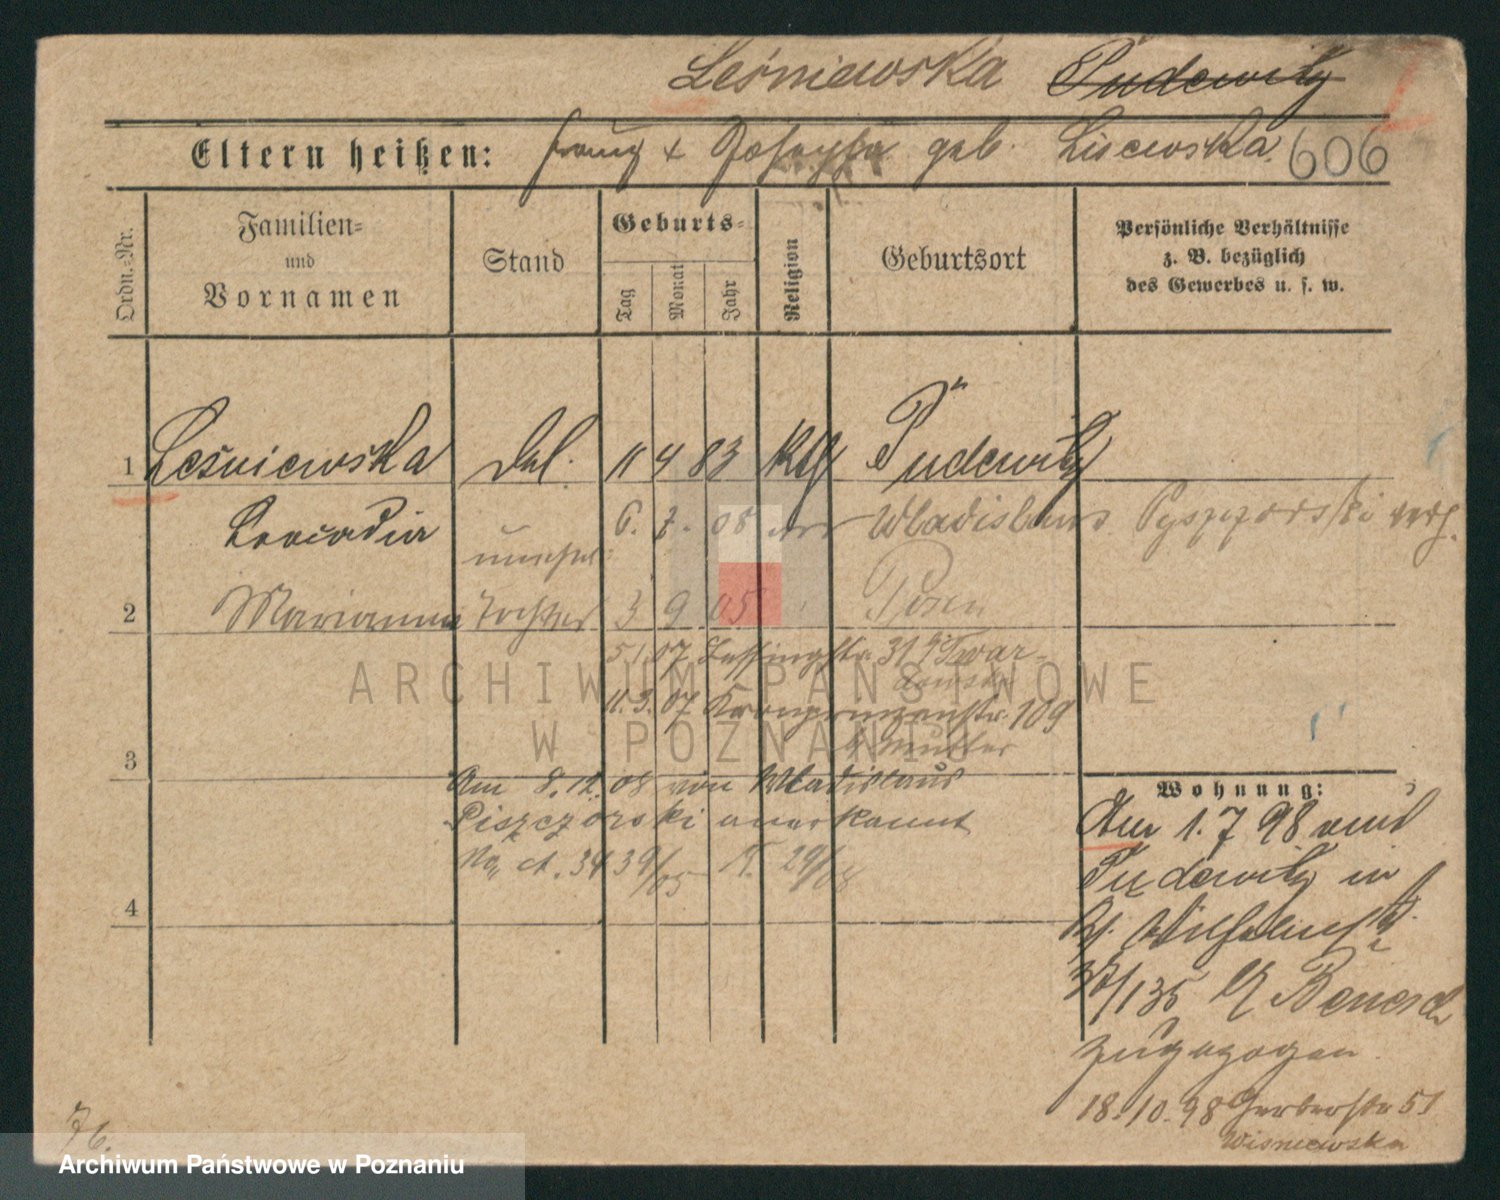 Leśniewska Pudewitz
Eltern heißen: Franz + Josepha geb. Lisiewska 606
Ordn.-Nr.
Familien-
und
Vornamen
Stand
Geburts-
Tag
Monat
Jahr
Religion
Geburtsort
Persönliche Verhältnisse
z. B. bezüglich
des Gewerbes u. s. w.
1 Leśniewska led. 11 4 83 Kth Pudewitz
Leocadia 6. 7. 08 Wladislaus Pyszczorski verh.
unehel.
2 Marianna Tochter 3 9 05 Posen
5/1 07 Lessingstr. 31 b Twar-
dowska
11. 3. 07 Kronprinzenstr. 109
b Mutter
3
Am 8.12.08 von Wladislaus
Piszczorski anerkannt
No A. 3439/05 29/08
4
Wohnung:
Am 1. 7 98 aus
Pudewitz in
Wilhelmstr.
W/135 b/ Benesch
zugezogen.
18. 10. 98 Gerberstr 51
Wisniewska
76.
ARCHIWUM PAŃSTWOWE
W POZNANIU
Archiwum Państwowe w Poznaniu